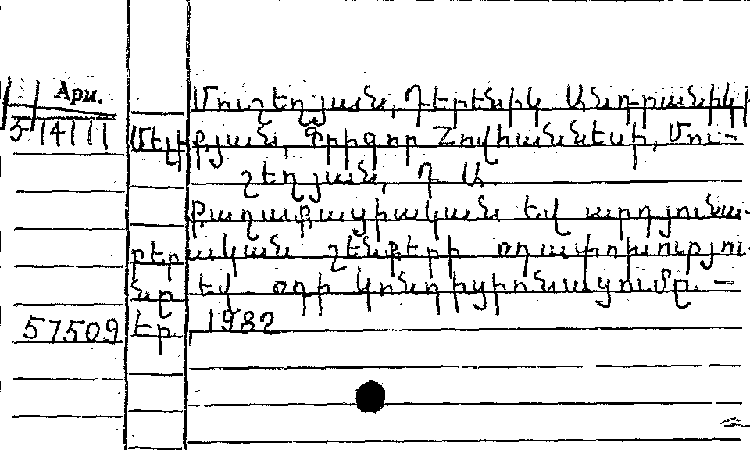 Арм.
5-14111
Մուշեղյան, Դերենիկ Անդրանիկի
Մելիքյան, Գրիգոր Հովհաննեսի, Մու-
շեղյան, Դ. Ա.
Քաղաքացիական եվ արդյունա-
բերական շենքերի օդափոխությու-
նը եվ օդի կոնդիցիոնացումը. —
57509 Եր., 1982